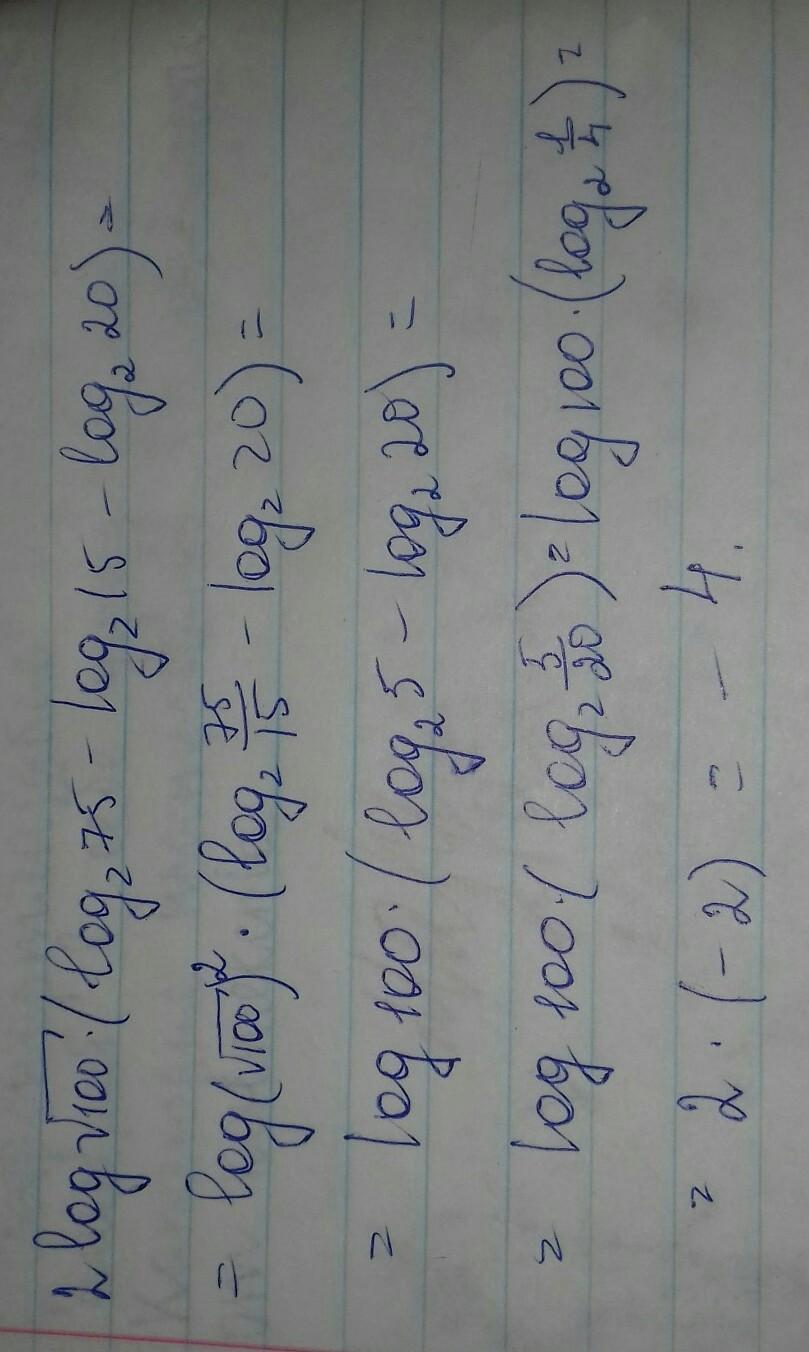 2 log √100 · (log₂ 75 - log₂ 15 - log₂ 20) =
= log (√100)² · (log₂ 75/15 - log₂ 20) =
= log 100 · (log₂ 5 - log₂ 20) =
= log 100 · (log₂ 5/20) = log 100 · (log₂ 1/4) =
= 2 · (-2) = - 4.